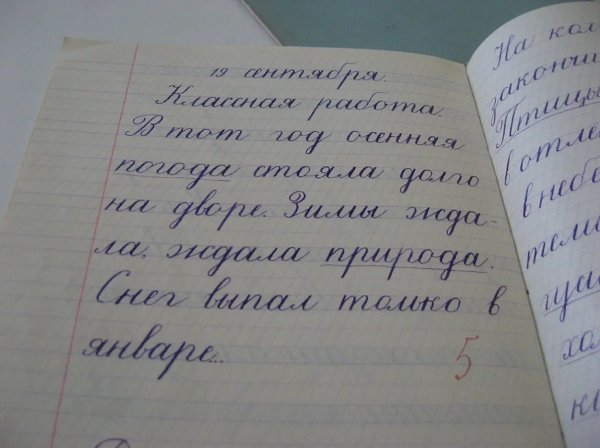 19 сентября.
Классная работа.
В тот год осенняя
погода стояла долго
на дворе. Зимы жда-
ла, ждала природа.
Снег выпал только в
январе...
5
На кол
закончи
Птицы
в отле
в небе
темн
хол